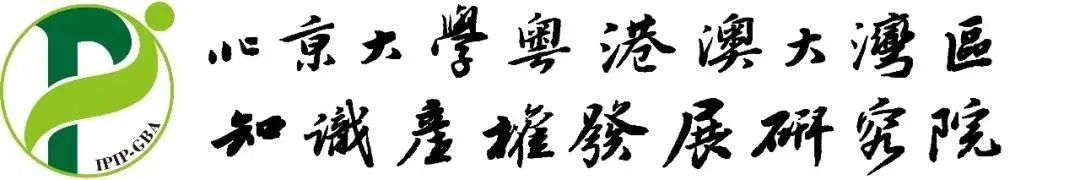 IPIP-GBA
北京大學粵港澳大灣區
知識產權發展研究院